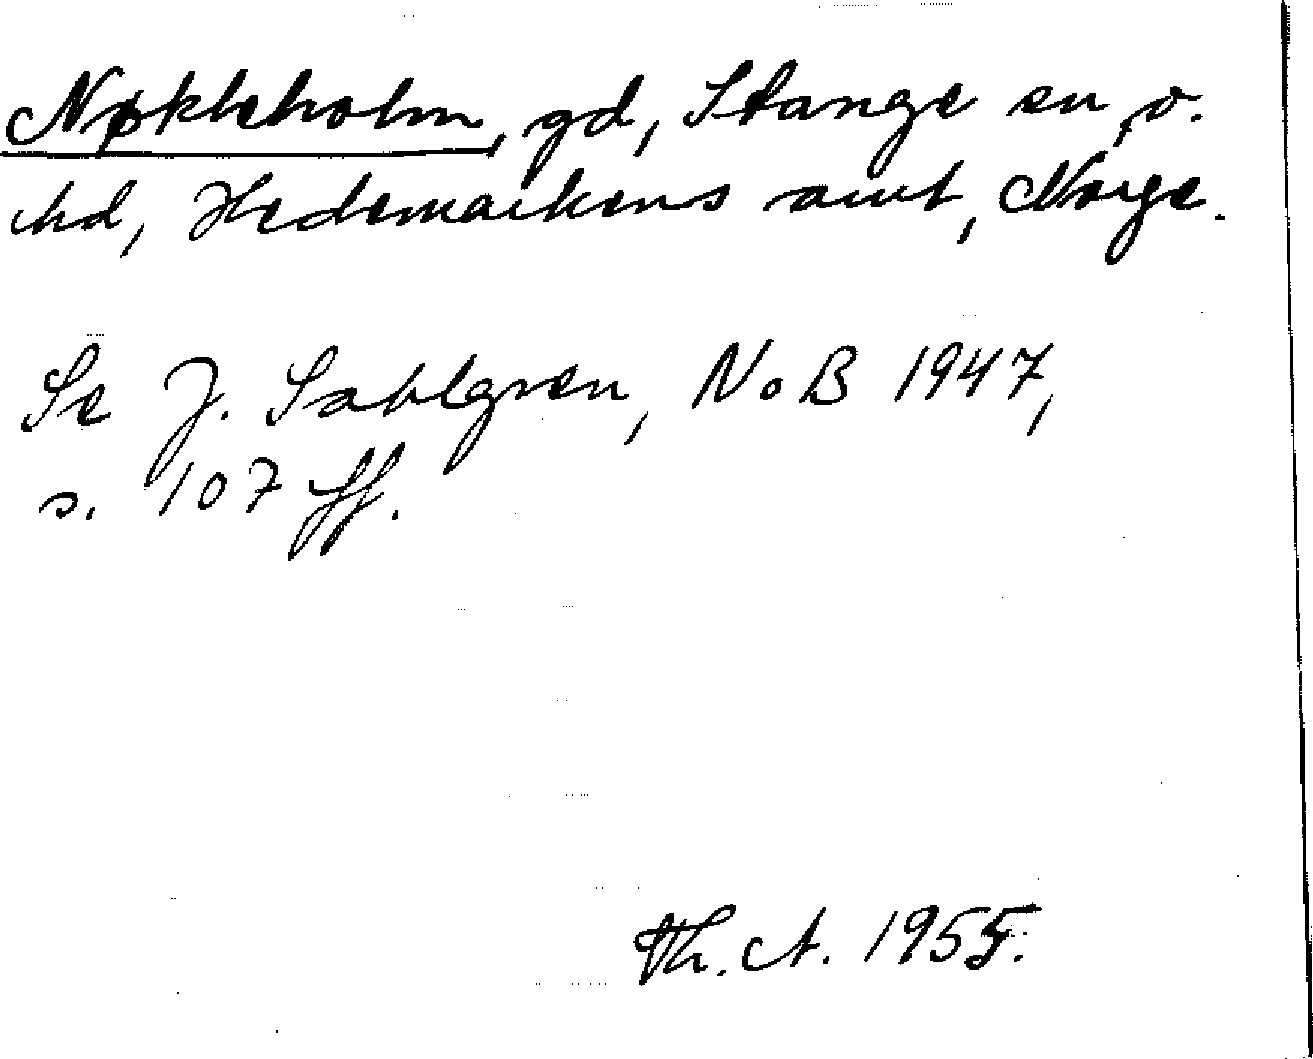 Nøkleholm, gd, Stange sn o.
hd, Hedemarkens amt, Norge.
Se J. Sahlgren, NoB 1947,
s. 107 ff.
Th. A. 1955.